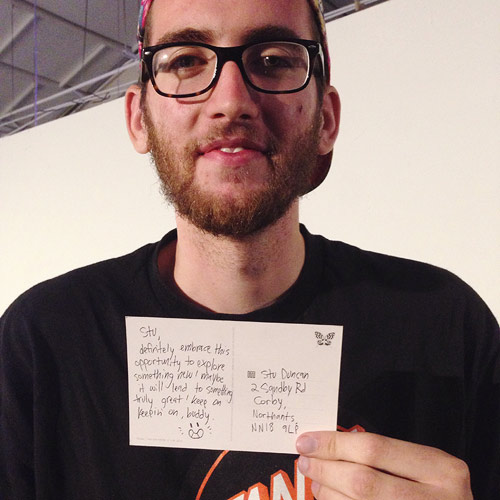 Stu,
definitely embrace this
opportunity to explore
something new! maybe
it will lend to something
truly great! keep on
keepin' on, buddy
Stu Duncan
2 Sandby Rd
Corby,
Northants
NN18 9LP